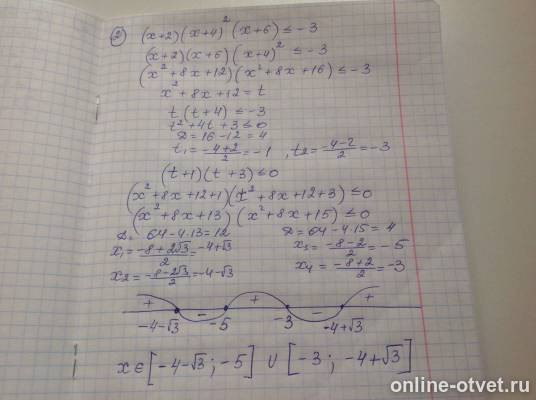 ② (x+2)(x+4)² (x+6) ≤ -3
(x+2)(x+6)(x+4)² ≤ -3
(x²+8x+12)(x²+8x+16) ≤ -3
x²+8x+12 = t
t(t+4) ≤ -3
t²+4t+3 ≤ 0
D = 16-12 = 4
t₁ = (-4+2)/2 = -1 , t₂ = (-4-2)/2 = -3
(t+1)(t+3) ≤ 0
(x²+8x+12+1)(t²+8x+12+3) ≤ 0
(x²+8x+13)(x²+8x+15) ≤ 0
D = 64-4·13 = 12
x₁ = (-8+2√3)/2 = -4+√3
x₂ = (-8-2√3)/2 = -4-√3
D = 64-4·15 = 4
x₃ = (-8-2)/2 = -5
x₄ = (-8+2)/2 = -3
+ - + - +
-4-√3 -5 -3 -4+√3
x ∈ [-4-√3 ; -5] ∪ [-3 ; -4+√3]
online-otvet.ru